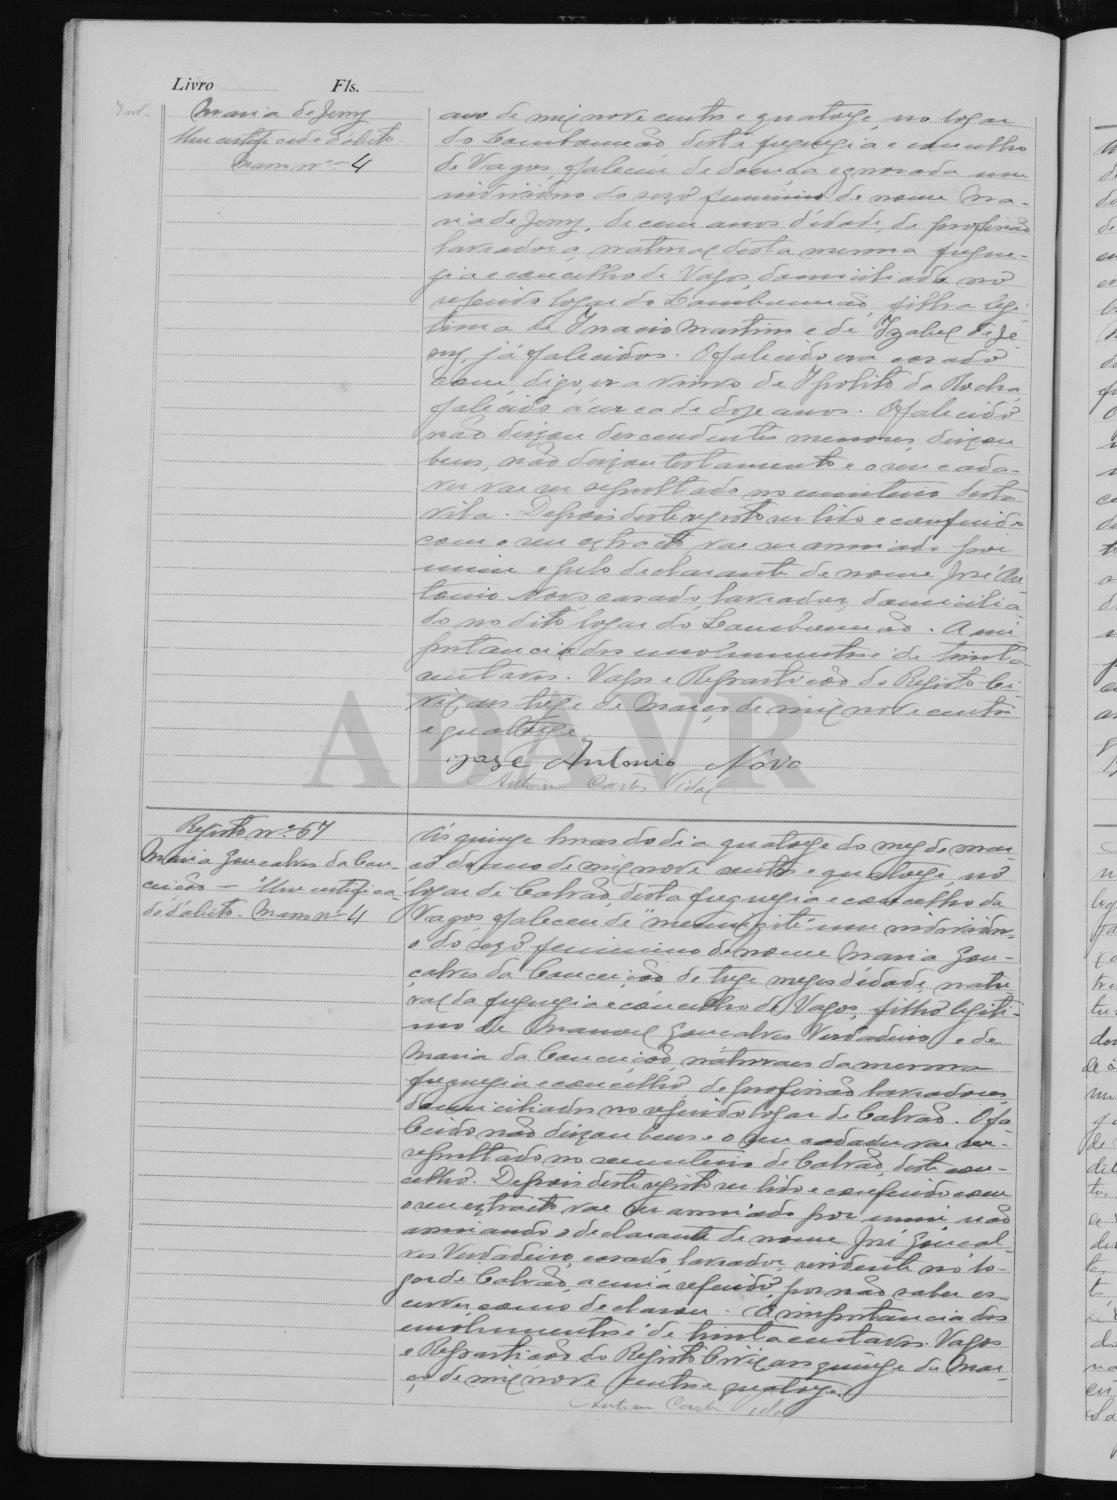 Livro Fls.
Maria de Jesus
Um certificado d'óbito
Maço nº 4
ano de mil nove centos e quatorze, no logar
do Lombomeão, desta freguezia e concelho
de Vagos, faleceu de doença ignorada um
individuo do sexo feminino de nome Ma-
ria de Jesus, de cem anos d'idade, de profissão
lavradora, natural desta mesma fregue-
zia e concelho de Vagos, domiciliada no
referido logar do Lombomeão, filha legi-
tima de Inacio Martins e de Izabel de Je-
sus, já falecidos. O falecido era casado
com, digo, era viuvo de Ipolito da Rocha,
falecido ácerca de doze anos. O falecido
não deixou descendentes menores, deixou
bens, não deixou testamento e o seu cada-
ver vae ser sepultado no cemiterio desta
vila. Depois deste registo ser lido e conferido
com o seu extracto, vae ser assinado por
mim e pelo declarante de nome José An-
tonio Novo, casado, lavrador, domicilia-
do no dito logar do Lombomeão. A im-
portancia dos emolumentos é de trinta
centavos. Vagos e Repartição do Registo Ci-
vil, aos treze de Março de mil nove centos
e quatorze.
José Antonio Nóvo
Carlos Vidal
ADAVR
Registo nº 67
Maria Gonçalves da Con-
ceição — Um certifica-
do d'óbito. Maço nº 4
Ás quinze horas do dia quatorze do mez de mar-
ço do ano de mil nove centos e quatorze, no
logar de Calvão, desta freguezia e concelho de
Vagos, faleceu de "meningite" um individu-
o do sexo feminino de nome Maria Gon-
çalves da Conceição, de treze mezes d'idade, natu-
ral da freguezia e concelho de Vagos, filho legiti-
mo de Manoel Gonçalves Verdadeiro e de
Maria da Conceição, naturaes da mesma
freguezia e concelho, de profissão lavradores
domiciliados no referido logar de Calvão. O fa-
lecido não deixou bens e o seu cadaver vae ser
sepultado no cemiterio de Calvão, deste con-
celho. Depois deste registo ser lido e conferido com
o seu extracto vae ser assinado por mim não
assinando o declarante de nome José Gonçal-
ves Verdadeiro, casado, lavrador, residente no lo-
gar de Calvão, acima referido, por não saber es-
crever, como declarou. A importancia dos
emolumentos é de trinta centavos. Vagos
e Repartição do Registo Civil, aos quinze de Mar-
ço de mil nove centos e quatorze.